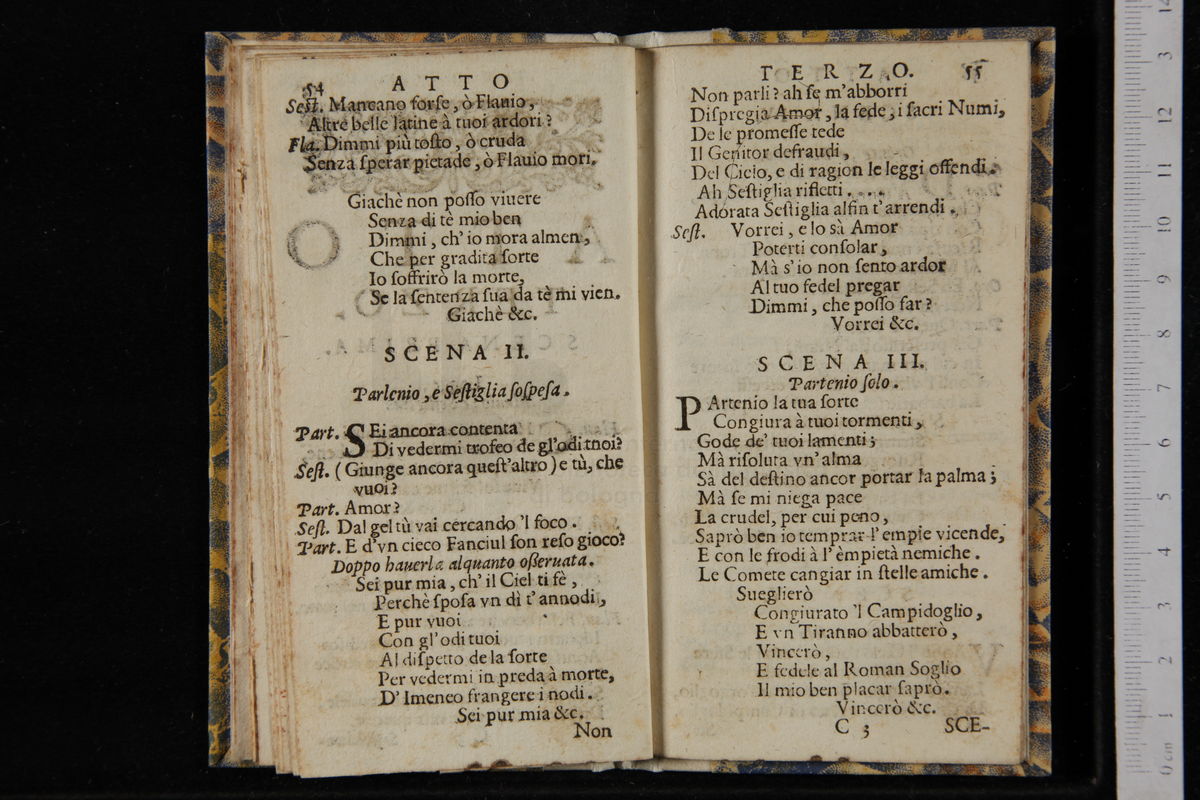 54 ATTO
Sest. Mancano forse, ò Flauio,
Altre belle latine à tuoi ardori?
Fla. Dimmi più tosto, ò cruda
Senza sperar pietade, ò Flauio mori.
Giachè non posso viuere
Senza di tè mio ben
Dimmi, ch' io mora almen,
Che per gradita sorte
Io soffrirò la morte,
Se la sentenza sua da tè mi vien.
Giachè &c.
SCENA II.
Partenio, e Sestiglia sospesa.
Part. SEi ancora contenta
Di vedermi trofeo de gl'odi tuoi?
Sest. (Giunge ancora quest'altro) e tù, che
vuoi?
Part. Amor?
Sest. Dal gel tù vai cercando 'l foco.
Part. E d'vn cieco Fanciul son reso gioco?
Doppo hauerla alquanto osseruata.
Sei pur mia, ch' il Ciel ti fè,
Perchè sposa vn dì t' annodi,
E pur vuoi
Con gl' odi tuoi
Al dispetto de la sorte
Per vedermi in preda à morte,
D' Imeneo frangere i nodi.
Sei pur mia &c.
Non
TERZO. 55
Non parli? ah se m'abborri
Dispregia Amor, la fede, i sacri Numi,
De le promesse tede
Il Genitor defraudi,
Del Cielo, e di ragion le leggi offendi.
Ah Sestiglia rifletti....
Adorata Sestiglia alfin t'arrendi.
Sest. Vorrei, e lo sà Amor
Poterti consolar,
Mà s' io non sento ardor
Al tuo fedel pregar
Dimmi, che posso far?
Vorrei &c.
SCENA III.
Partenio solo.
PArtenio la tua sorte
Congiura à tuoi tormenti,
Gode de' tuoi lamenti;
Mà risoluta vn' alma
Sà del destino ancor portar la palma;
Mà se mi niega pace
La crudel, per cui peno,
Saprò ben io temprar l' empie vicende,
E con le frodi à l' èmpietà nemiche.
Le Comete cangiar in stelle amiche.
Sueglierò
Congiurato 'l Campidoglio,
E vn Tiranno abbatterò,
Vincerò,
E fedele al Roman Soglio
Il mio ben placar saprò.
Vincerò &c.
C 3 SCE-
0 cm 1 2 3 4 5 6 7 8 9 10 11 12 13 14